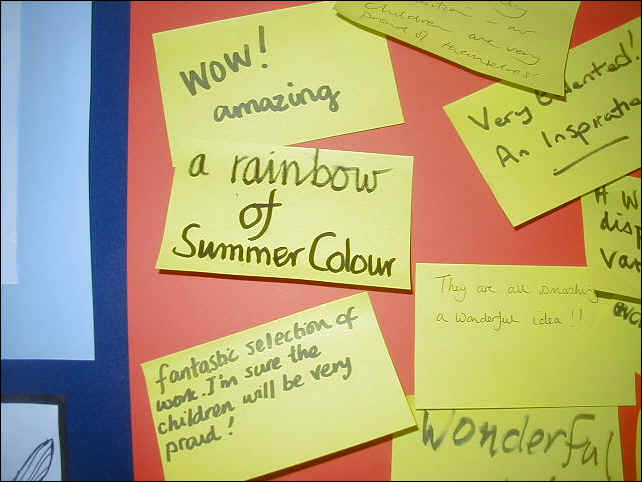 children are very
proud of themselves!
WOW!
amazing
Very
An
a rainbow
of
Summer Colour
A W
disp
Var
They are all smashing
a wonderful idea!!
fantastic selection of
work. I'm sure the
children will be very
proud!
Wonderful